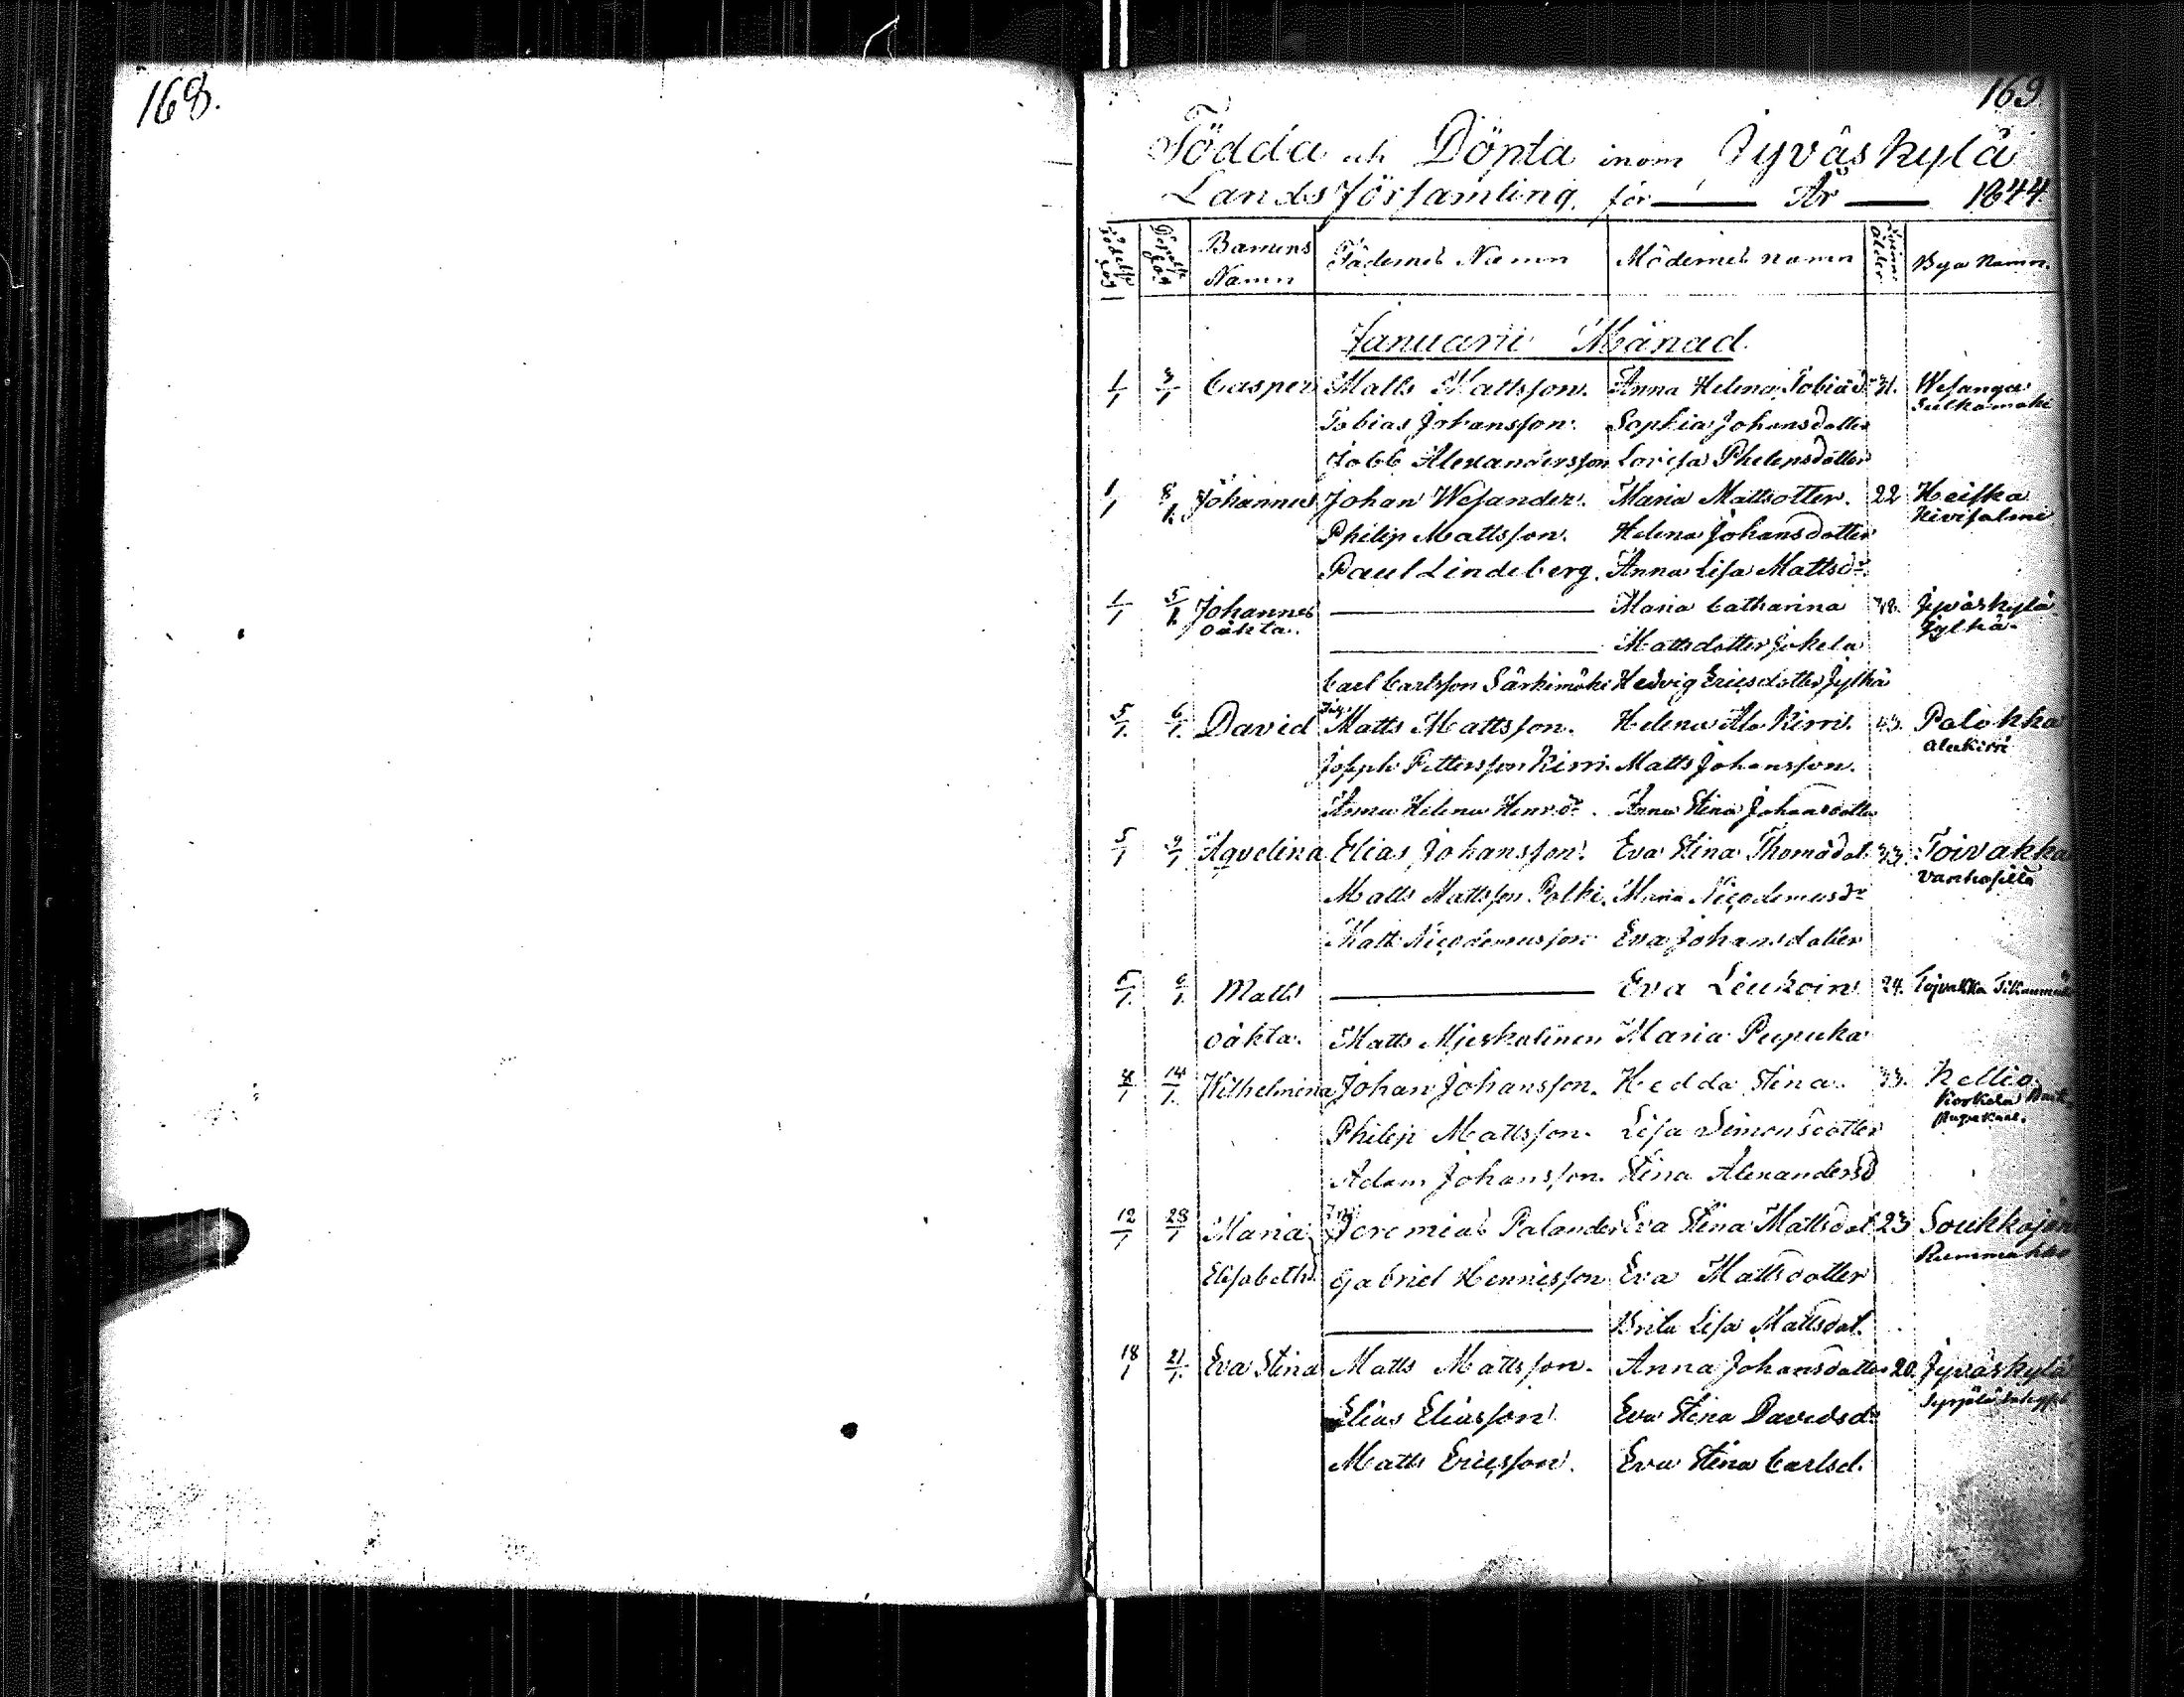 168.
169
Födda och Döpta inom Jyväskylä
Lands församling. för År 1844.
Födelse dag
Barnens Namn
Fädernes Namn
Mödernes namn
Ålder
Bya Namn.
Januarii Månad.
1/1 3/1 Casper Matts Mattsson. Anna Helena Tobiæd 31. Wesanga
Sulkamäki
Tobias Johansson. Sophia Johansdotter
Jobb Alexandersson Lovisa Philipsdotter
1/1 8/1. Johannes Johan Wesander. Maria Mattsotter. 22 Keiska
Kivisalmi
Philip Mattsson. Helena Johansdotter
Paul Lindeberg. Anna Lisa Mattsdr
1/1 5/1. Johannes Maria Catharina 38. Jyväskylä
oäkta. Jylhä.
Mattsdotter Jokela
Carl Carlsson Särkimäki Hedvig Ericsdotter Jylhä
5/1. 6/1. David Matts Mattsson. Helena Ala Kirri. 43. Palokka
Alakirri
Joseph Pettersson Kirri. Matts Johansson.
Anna Helena Henrdr. Anna Stina Johansdotter
5/1 9/1 Aqvelina Elias Johansson. Eva Stina Thomædot. 33. Toivakka
Vanhasilla
Matts Mattsson Polki. Maria Nicodemusdr
Matts Nicodemusson Eva Johansdotter
5/1. 6/1. Matts Eva Leukoin 24. Tojvakka
oäkta. Matts Mjeskalinen Maria Pupuka
8/1 14/1. Wilhelmina Johan Johansson. Hedda Stina. 33. Keljo
Koskela
Philip Mattsson. Lisa Simonsdotter
Adam Johansson. Stina Alexandersd
12/1 28/1 Maria Jeremias Palander Eva Stina Mattsdot 23 Soukkojen
Rummakko
Elisabeth. Gabriel Henricsson Eva Mattsdotter
Brita Lisa Mattsdot.
18/1 21/1. Eva Stina Matts Mattsson. Anna Johansdotter 20. Jyväskylä
Elias Eliasson Eva Stina Davidsd
Matts Ericsson. Eva Stina Carlsd.